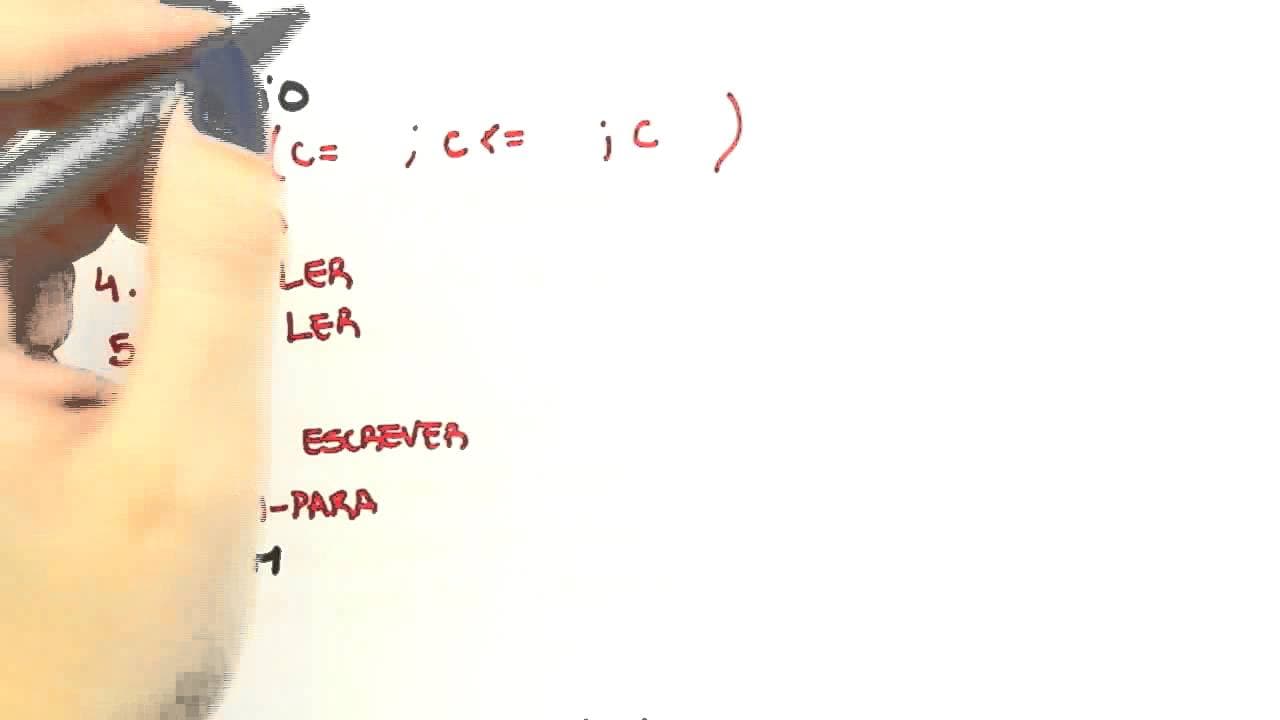 (c= ; c<= ; c )
4. LER
5 LER
ESCREVER
-PARA